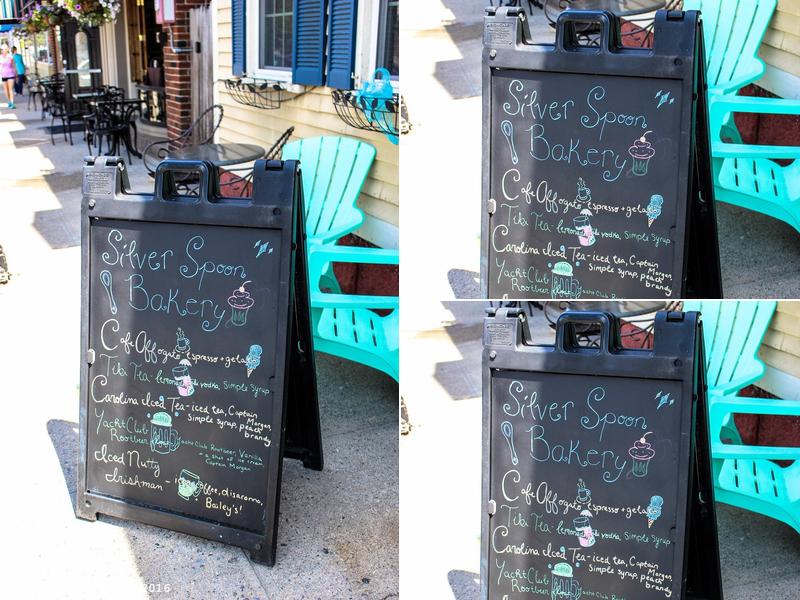 Silver Spoon
Bakery
Cafe Offogato espresso + gela
Tika Tea - lemon vodka, Simple Syrup
Carolina Iced Tea - iced tea, Captain Morgan
simple syrup, peach brandy
Yacht Club
Rootbeer float Yacht Club Rootbeer, Vanilla
- a shot of ice cream
Captain Morgan
Iced Nutty
Irishman - iced coffee, disaronno,
Bailey's!
2016
Silver Spoon
Bakery
Cafe Offogato espresso + gela
Tika Tea - lemon vodka, Simple Syrup
Carolina Iced Tea - iced tea, Captain Morgan
simple syrup, peach brandy
Yacht Club
Rootbeer float Yacht Club Root
Silver Spoon
Bakery
Cafe Offogato espresso + gela
Tika Tea - lemon vodka, Simple Syrup
Carolina Iced Tea - iced tea, Captain Morgan
simple syrup, peach brandy
Yacht Club
Rootbeer